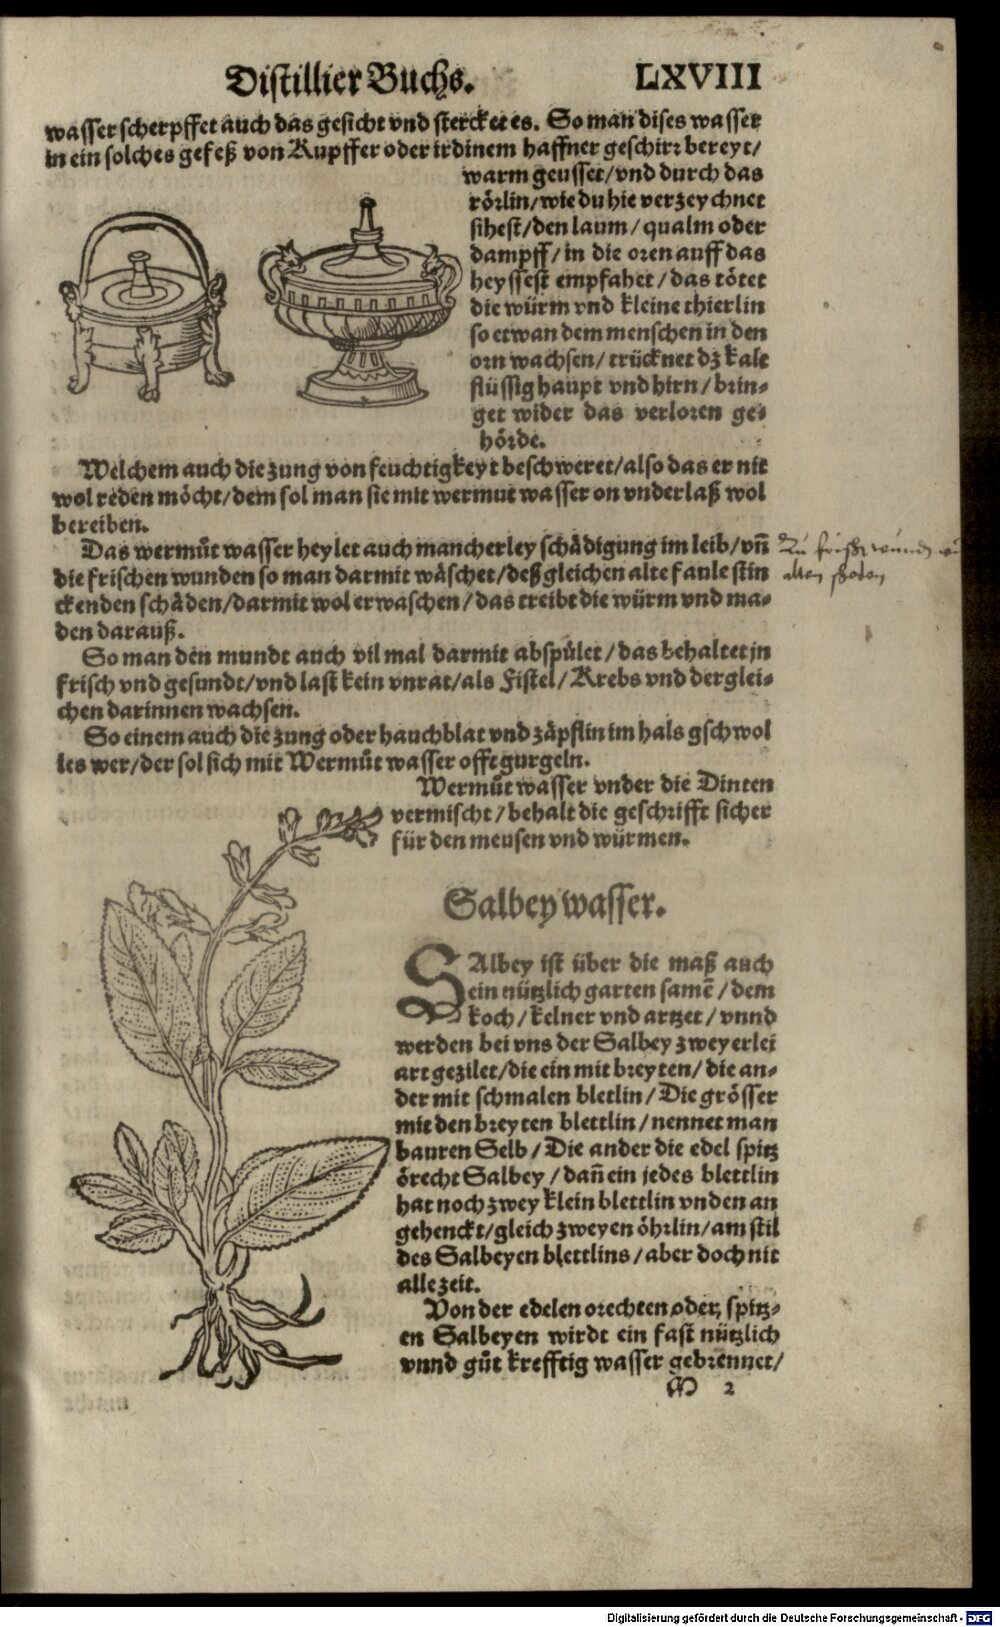 Distillier Buchs. LXVIII
wasser scherpffet auch das gesicht vnd stercket es. So man dises wasser
in ein solches gefeß von Kupffer oder irdinem haffner geschirꝛ bereyt/
warm geusset/vnd durch das
rörlin/wie du hie verzeychnet
sihest/den laum/qualm oder
dampff/in die oren auff das
heyssest empfahet/das tötet
die würm vnd kleine thierlin
so etwan dem menschen in den
orn wachsen/trücknet dz kalt
flüssig haupt vnd hirn/brin-
get wider das verloren ge-
hörde.
Welchem auch die zung von feuchtigkeyt beschweret/also das er nit
wol reden möcht/dem sol man sie mit wermut wasser on vnderlaß wol
bereiben.
Das wermůt wasser heylet auch mancherley schädigung im leib/vñ
die frischen wunden so man darmit wäschet/deßgleichen alte faule stin
ckenden schäden/darmit wol erwaschen/das treibt die würm vnd ma-
den darauß.
So man den mundt auch vil mal darmit abspület/das behaltet jn
frisch vnd gesundt/vnd last kein vnrat/als Fistel/Krebs vnd derglei-
chen darinnen wachsen.
So einem auch die zung oder hauchblat vnd zäpflin im hals gschwol
les wer/der sol sich mit Wermůt wasser offt gurgeln.
Wermůt wasser vnder die Dinten
vermischt/behalt die geschrifft sicher
für den meusen vnd würmen.
Zu frische wunden
alten schaden
Salbey wasser.
SAlbey ist über die maß auch
ein nützlich garten samē/dem
koch/kelner vnd artzet/vnnd
werden bei vns der Salbey zweyerlei
art gezilet/die ein mit breyten/die an-
der mit schmalen bletlin/Die grösser
mit den breyten blettlin/nennet man
bauren Selb/Die ander die edel spitz
örecht Salbey/dañ ein jedes blettlin
hat noch zwey klein blettlin vnden an
gehenckt/gleich zweyen öhrlin/am stil
des Salbeyen blettlins/aber doch nit
alle zeit.
Von der edelen orechten oder, spitz-
en Salbeyen wirdt ein fast nützlich
vnnd gůt krefftig wasser gebrennet/
M 2
Digitalisierung gefördert durch die Deutsche Forschungsgemeinschaft - DFG